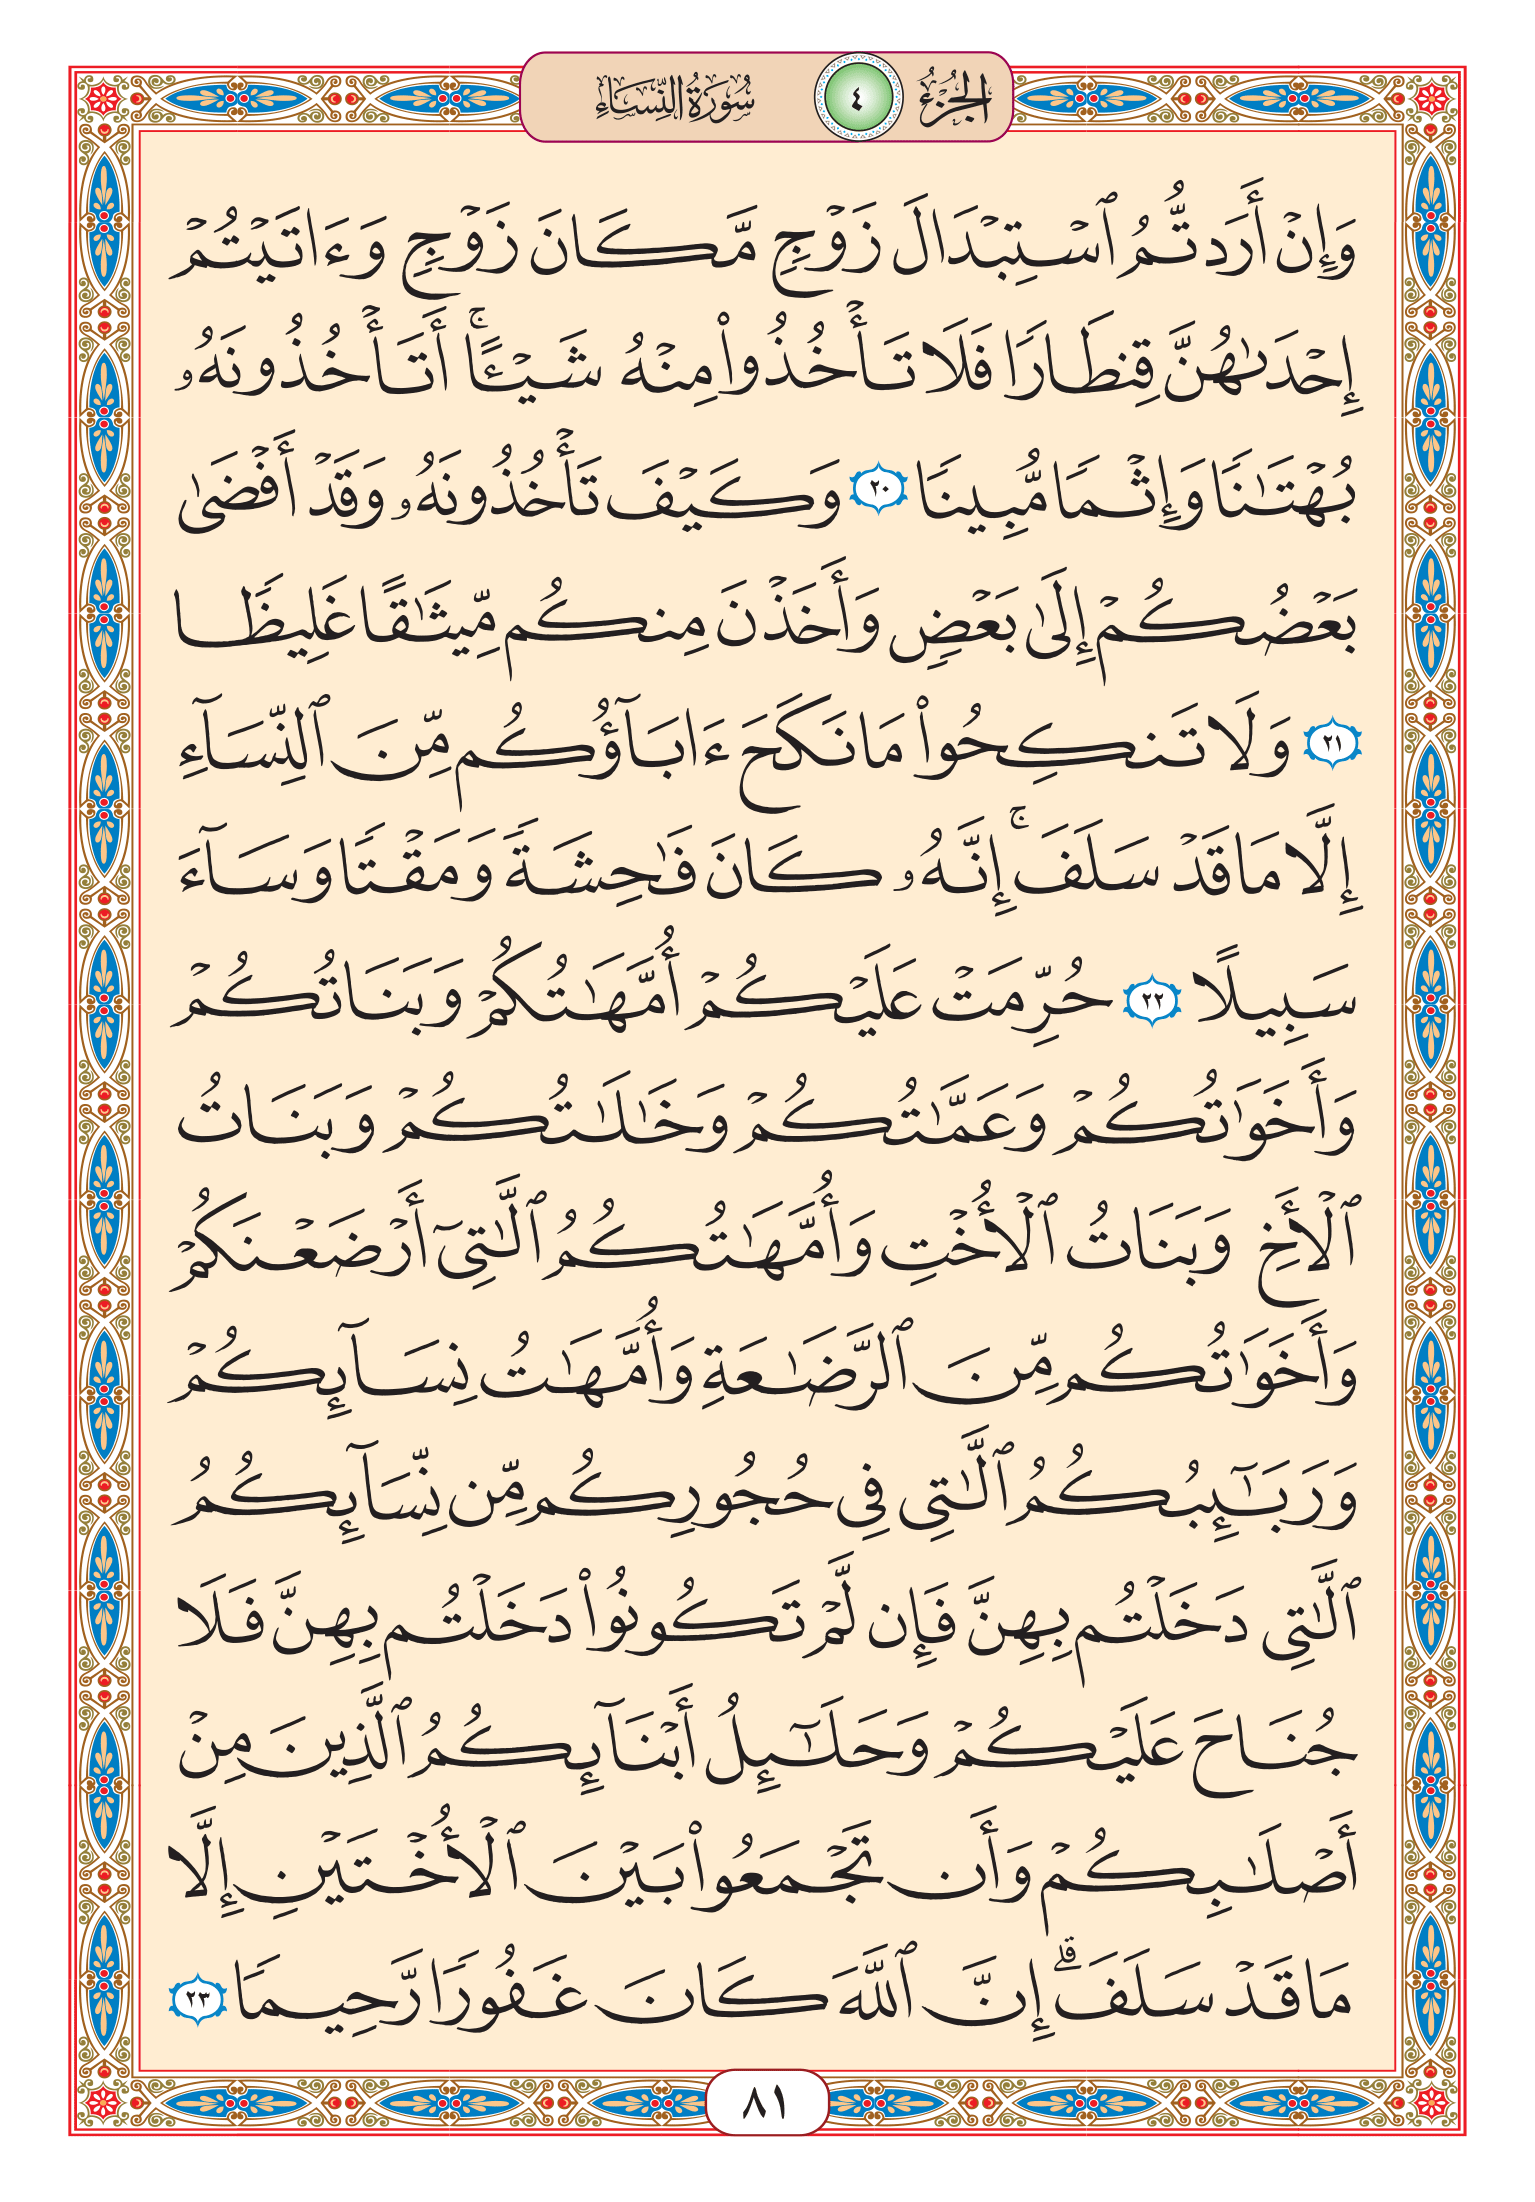 الجزء ٤ سورة النساء
وَإِنْ أَرَدتُّمُ ٱسْتِبْدَالَ زَوْجٍ مَّكَانَ زَوْجٍ وَءَاتَيْتُمْ
إِحْدَىٰهُنَّ قِنطَارًا فَلَا تَأْخُذُوا۟ مِنْهُ شَيْـًٔا ۚ أَتَأْخُذُونَهُۥ
بُهْتَـٰنًا وَإِثْمًا مُّبِينًا ٢٠ وَكَيْفَ تَأْخُذُونَهُۥ وَقَدْ أَفْضَىٰ
بَعْضُكُمْ إِلَىٰ بَعْضٍ وَأَخَذْنَ مِنكُم مِّيثَـٰقًا غَلِيظًا
٢١ وَلَا تَنكِحُوا۟ مَا نَكَحَ ءَابَآؤُكُم مِّنَ ٱلنِّسَآءِ
إِلَّا مَا قَدْ سَلَفَ ۚ إِنَّهُۥ كَانَ فَـٰحِشَةً وَمَقْتًا وَسَآءَ
سَبِيلًا ٢٢ حُرِّمَتْ عَلَيْكُمْ أُمَّهَـٰتُكُمْ وَبَنَاتُكُمْ
وَأَخَوَٰتُكُمْ وَعَمَّـٰتُكُمْ وَخَـٰلَـٰتُكُمْ وَبَنَاتُ
ٱلْأَخِ وَبَنَاتُ ٱلْأُخْتِ وَأُمَّهَـٰتُكُمُ ٱلَّـٰتِىٓ أَرْضَعْنَكُمْ
وَأَخَوَٰتُكُم مِّنَ ٱلرَّضَـٰعَةِ وَأُمَّهَـٰتُ نِسَآئِكُمْ
وَرَبَـٰٓئِبُكُمُ ٱلَّـٰتِى فِى حُجُورِكُم مِّن نِّسَآئِكُمُ
ٱلَّـٰتِى دَخَلْتُم بِهِنَّ فَإِن لَّمْ تَكُونُوا۟ دَخَلْتُم بِهِنَّ فَلَا
جُنَاحَ عَلَيْكُمْ وَحَلَـٰٓئِلُ أَبْنَآئِكُمُ ٱلَّذِينَ مِنْ
أَصْلَـٰبِكُمْ وَأَن تَجْمَعُوا۟ بَيْنَ ٱلْأُخْتَيْنِ إِلَّا
مَا قَدْ سَلَفَ ۗ إِنَّ ٱللَّهَ كَانَ غَفُورًا رَّحِيمًا ٢٣
٨١